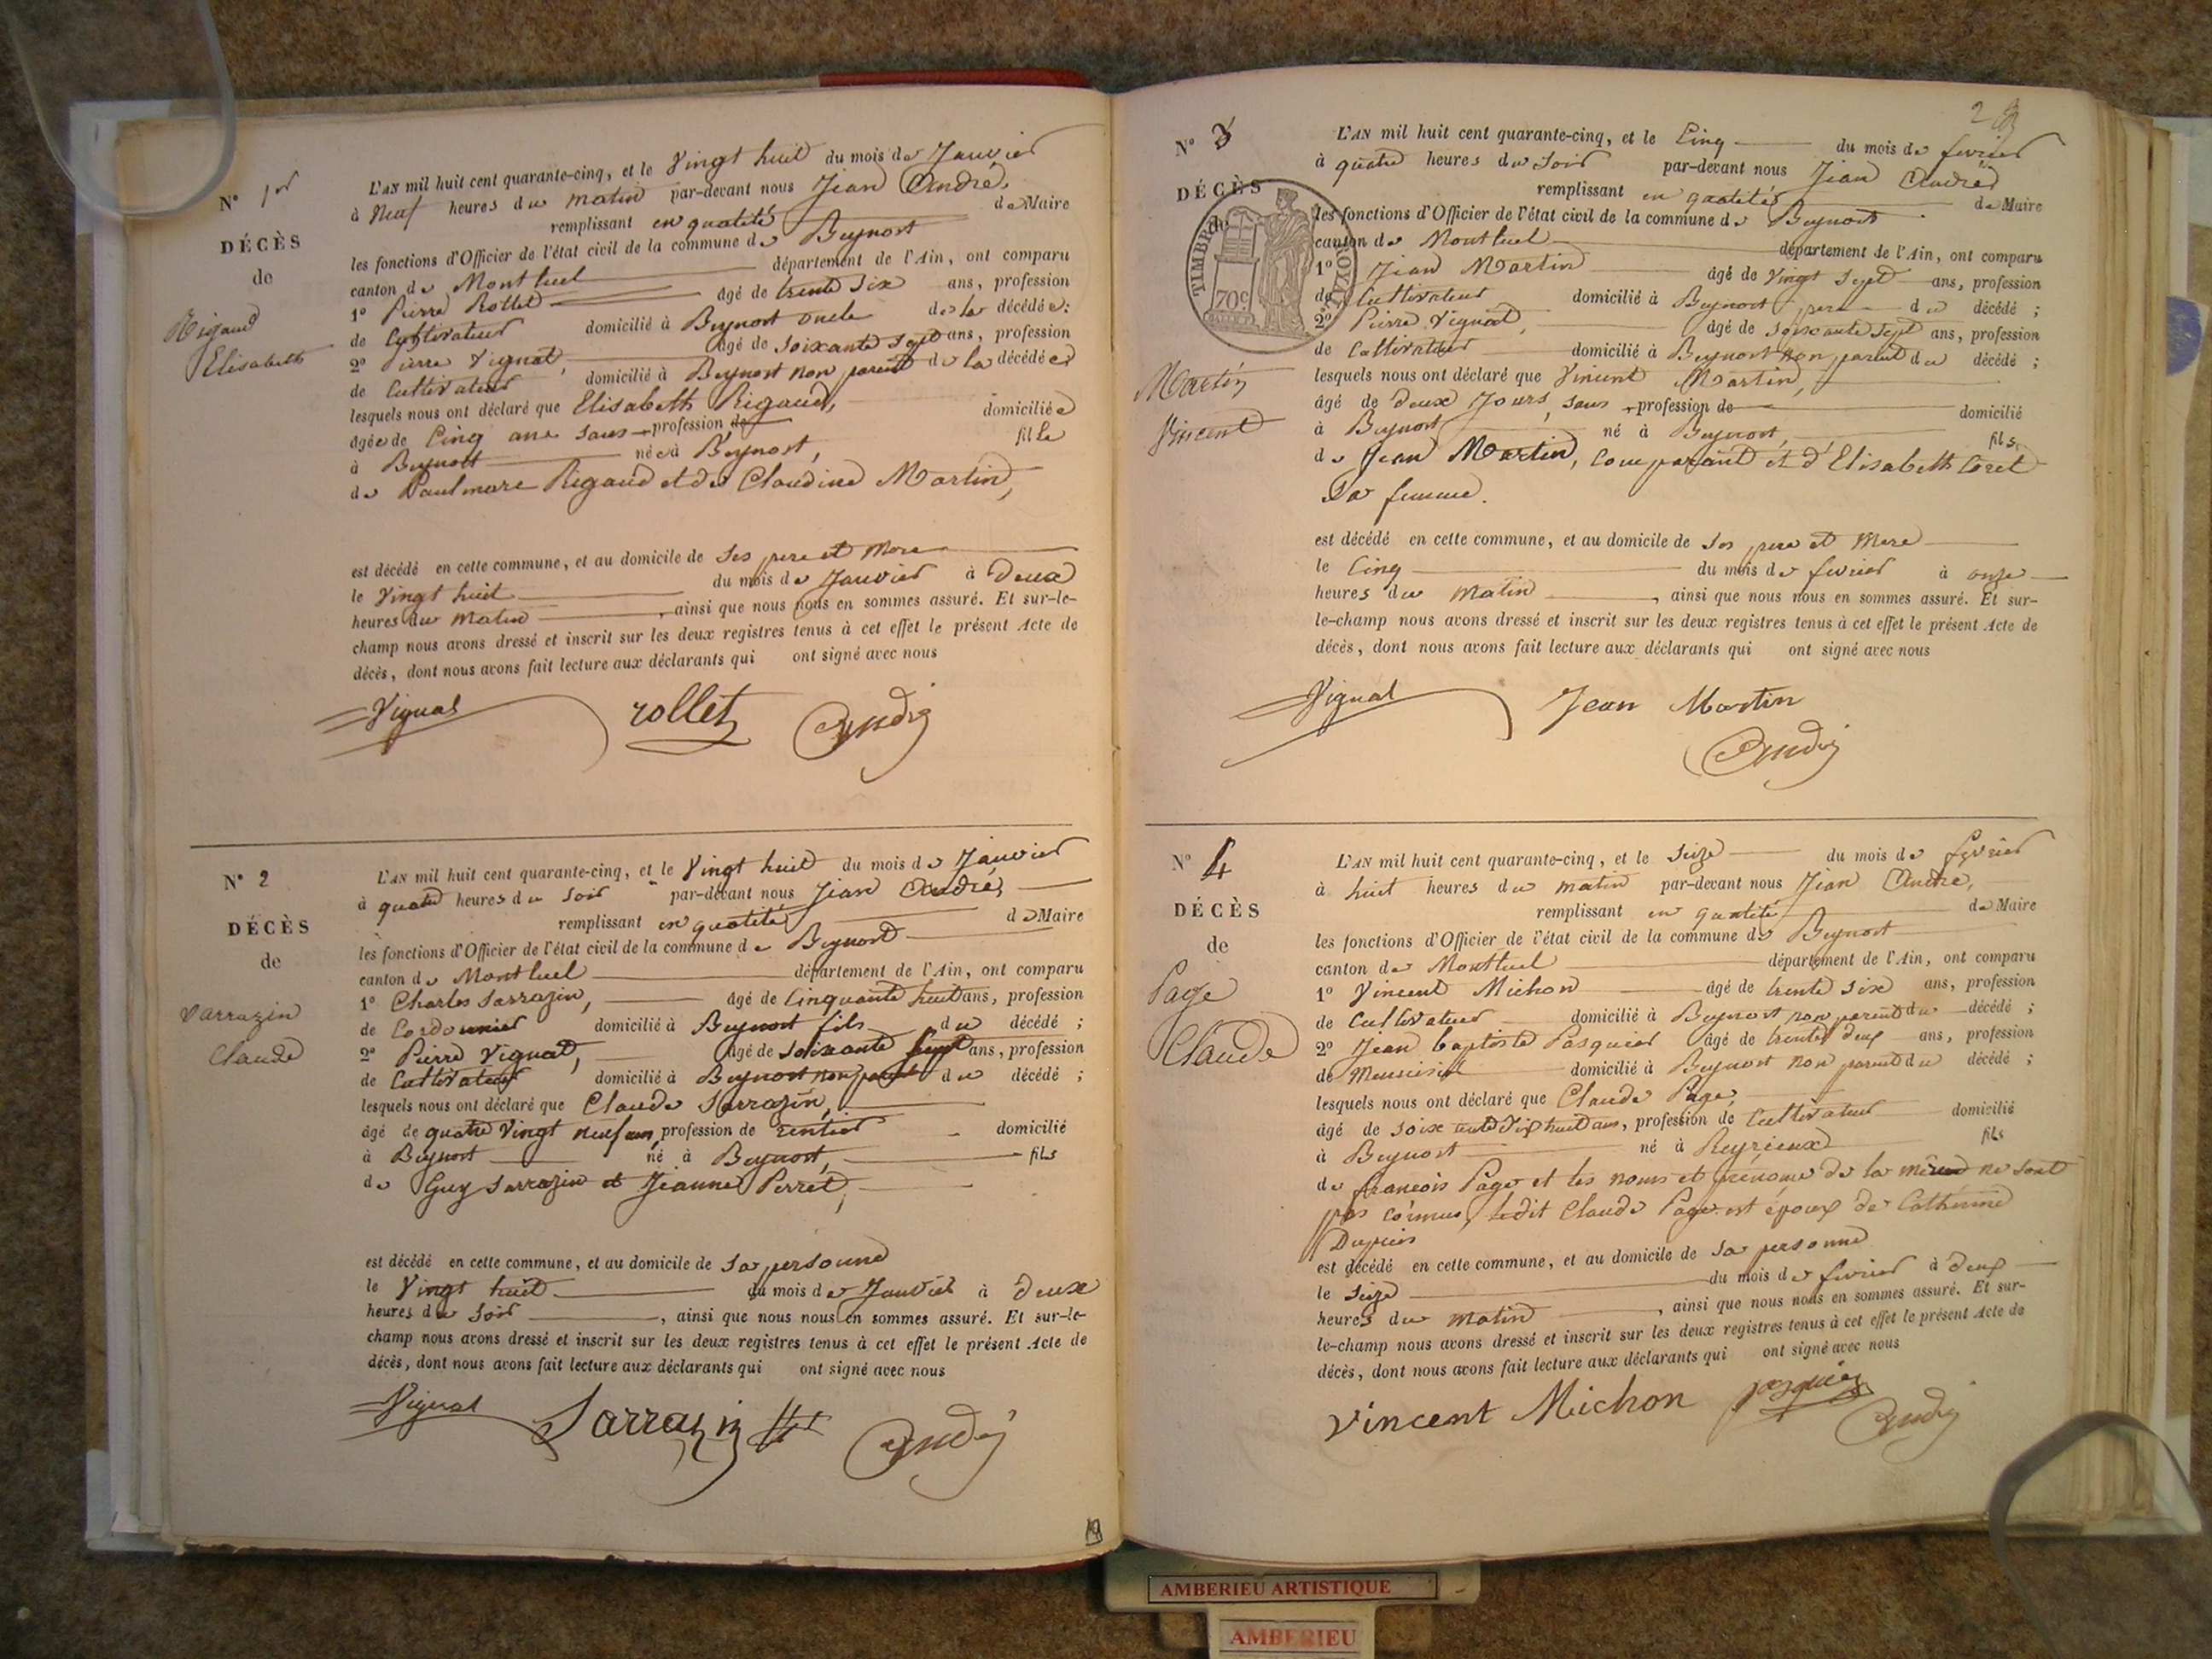 N° 1er
DÉCÈS
de
Rigaud
Elisabeth
L'AN mil huit cent quarante-cinq, et le Vingt huit du mois de Janvier
à Neuf heures du matin par-devant nous Jean André,
remplissant en qualité de Maire
les fonctions d'Officier de l'état civil de la commune de Beynost
canton de Montluel département de l'Ain, ont comparu
1° Pierre Rollet âgé de trente six ans, profession
de Cultivateur domicilié à Beynost oncle de la décédée;
2° Pierre Vignat, âgé de soixante sept ans, profession
de Cultivateur domicilié à Beynost non parent de la décédée
lesquels nous ont déclaré que Elisabeth Rigaud,
âgée de Cinq ans sans profession de domiciliée
à Beynost née à Beynost, fille
de Rigaud et de Claudine Martin,
est décédé en cette commune, et au domicile de ses pere et Mere
le Vingt huit du mois de Janvier à Deux
heures du Matin, ainsi que nous nous en sommes assuré. Et sur-le-
champ nous avons dressé et inscrit sur les deux registres tenus à cet effet le présent Acte de
décès, dont nous avons fait lecture aux déclarants qui ont signé avec nous
Vignat rollet André
N° 2
DÉCÈS
de
Sarrazin
Claude
L'AN mil huit cent quarante-cinq, et le Vingt huit du mois de Janvier
à quatre heures du soir par-devant nous Jean André,
remplissant en qualité de Maire
les fonctions d'Officier de l'état civil de la commune de Beynost
canton de Montluel département de l'Ain, ont comparu
1° Charles Sarrazin, âgé de Cinquante huit ans, profession
de Cordonnier domicilié à Beynost fils du décédé;
2° Pierre Vignat, âgé de soixante sept ans, profession
de Cultivateur domicilié à Beynost non parent du décédé;
lesquels nous ont déclaré que Claude Sarrazin,
âgé de quatre Vingt neuf ans, profession de rentier domicilié
à Beynost né à Beynost, fils
de Guy Sarrazin et Jeanne Perret,
est décédé en cette commune, et au domicile de sa personne
le Vingt huit du mois de Janvier à deux
heures du Soir, ainsi que nous nous en sommes assuré. Et sur-le-
champ nous avons dressé et inscrit sur les deux registres tenus à cet effet le présent Acte de
décès, dont nous avons fait lecture aux déclarants qui ont signé avec nous
Vignat Sarrazin André
2
N° 3
DÉCÈS
de
TIMBRE ROYAL
70c
Martin
Vincent
L'AN mil huit cent quarante-cinq, et le Cinq du mois de fevrier
à quatre heures du Soir par-devant nous Jean André
remplissant en qualité de Maire
les fonctions d'Officier de l'état civil de la commune de Beynost
canton de Montluel département de l'Ain, ont comparu
1° Jean Martin âgé de Vingt Sept ans, profession
de Cultivateur domicilié à Beynost pere du décédé;
2° Pierre Vignat, âgé de soixante sept ans, profession
de Cultivateur domicilié à Beynost non parent du décédé;
lesquels nous ont déclaré que Vincent Martin,
âgé de deux Jours, sans profession de domicilié
à Beynost né à Beynost, fils
de Jean Martin, comparant et d'Elisabeth Coret
Sa femme.
est décédé en cette commune, et au domicile de ses pere et Mere
le Cinq du mois de fevrier à onze
heures du Matin, ainsi que nous nous en sommes assuré. Et sur-
le-champ nous avons dressé et inscrit sur les deux registres tenus à cet effet le présent Acte de
décès, dont nous avons fait lecture aux déclarants qui ont signé avec nous
Vignat Jean Martin
André
N° 4
DÉCÈS
de
Page
Claude
L'AN mil huit cent quarante-cinq, et le Seize du mois de fevrier
à huit heures du matin par-devant nous Jean André,
remplissant en qualité de Maire
les fonctions d'Officier de l'état civil de la commune de Beynost
canton de Montluel département de l'Ain, ont comparu
1° Vincent Michon âgé de trente six ans, profession
de Cultivateur domicilié à Beynost non parent du décédé;
2° Jean baptiste Pasquier âgé de trente deux ans, profession
de Menuisier domicilié à Beynost non parent du décédé;
lesquels nous ont déclaré que Claude Page,
âgé de soixante dix huit ans, profession de Cultivateur domicilié
à Beynost né à Reyrieux fils
de francois Page et les noms et prénoms de la mère ne sont
pas connus, ledit Claude Page est époux de Catherine
Dupuis
est décédé en cette commune, et au domicile de sa personne
le Seize du mois de fevrier à deux
heures du matin, ainsi que nous nous en sommes assuré. Et sur-
le-champ nous avons dressé et inscrit sur les deux registres tenus à cet effet le présent Acte de
décès, dont nous avons fait lecture aux déclarants qui ont signé avec nous
Vincent Michon pasquier André
AMBERIEU ARTISTIQUE
AMBERIEU